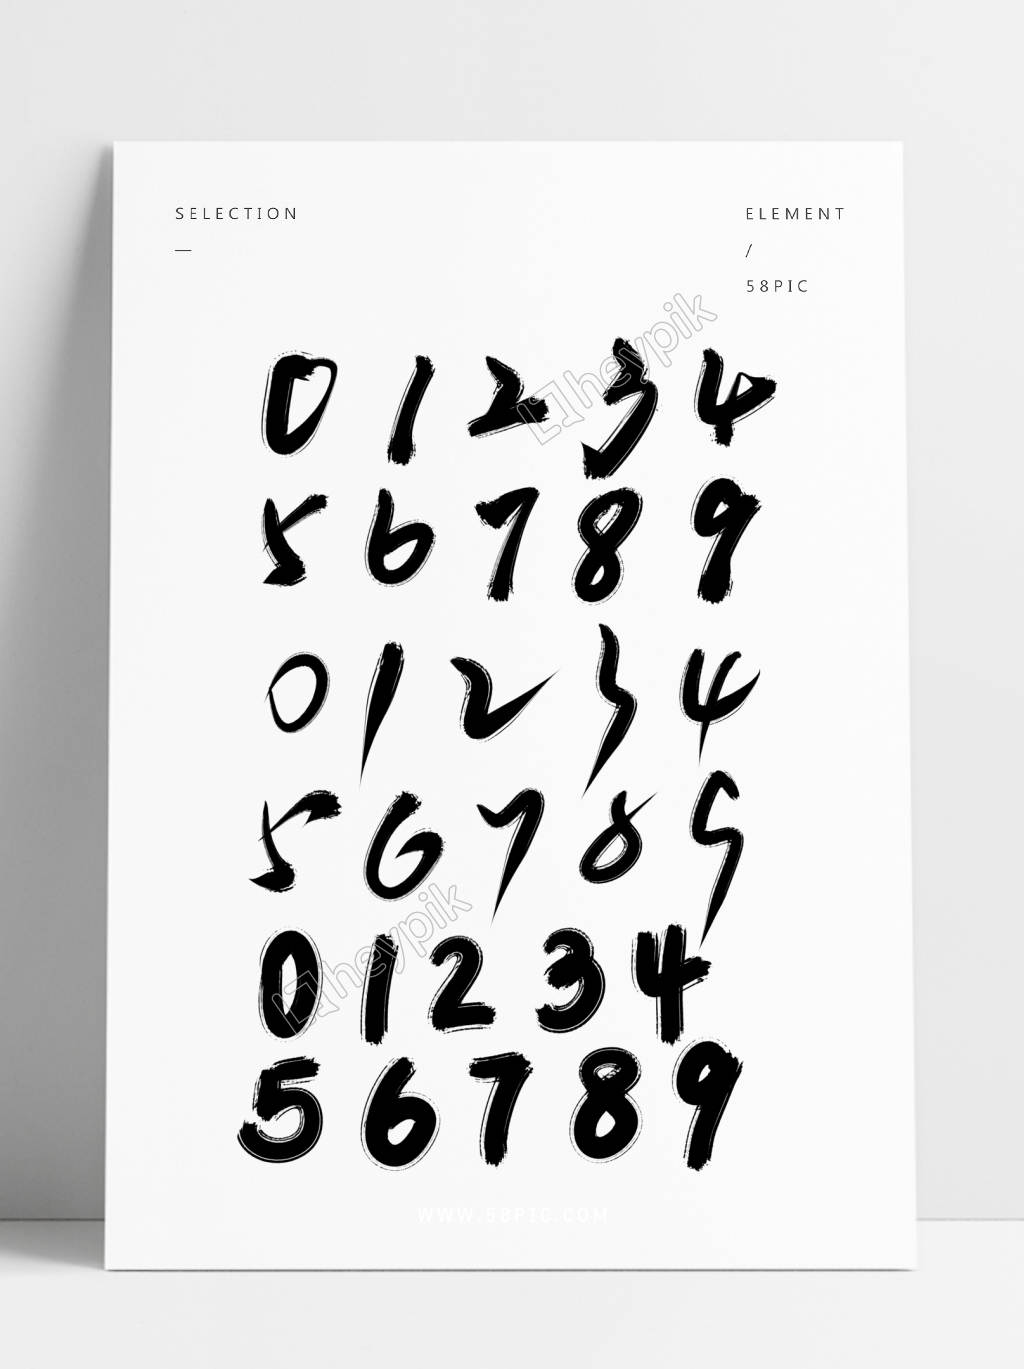 SELECTION
—
ELEMENT
/
58PIC
heypik
0 1 2 3 4
5 6 7 8 9
0 1 2 3 4
5 6 7 8 9
heypik
0 1 2 3 4
5 6 7 8 9
WWW.58PIC.COM